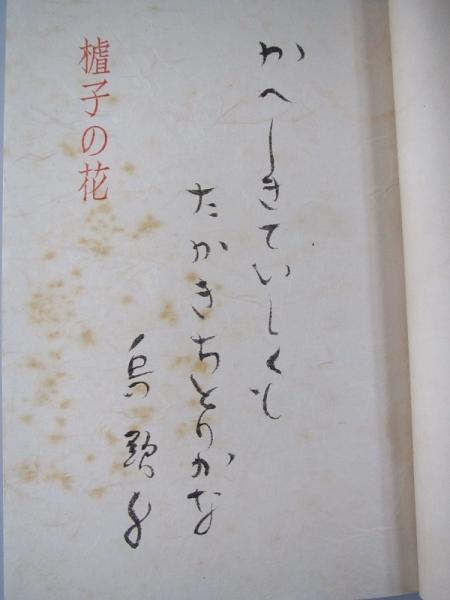 かへしきていしくも
たかきちとりかな
烏頭子
樝子の花